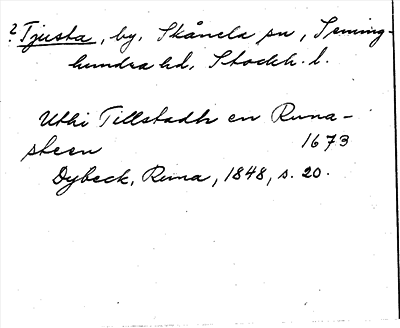 ? Tjusta, by, Skånela sn, Seming-
hundra hd, Stockh. l.
Uthi Tillstadh en Runa-
steen 1673
Dybeck, Runa, 1848, s. 20.